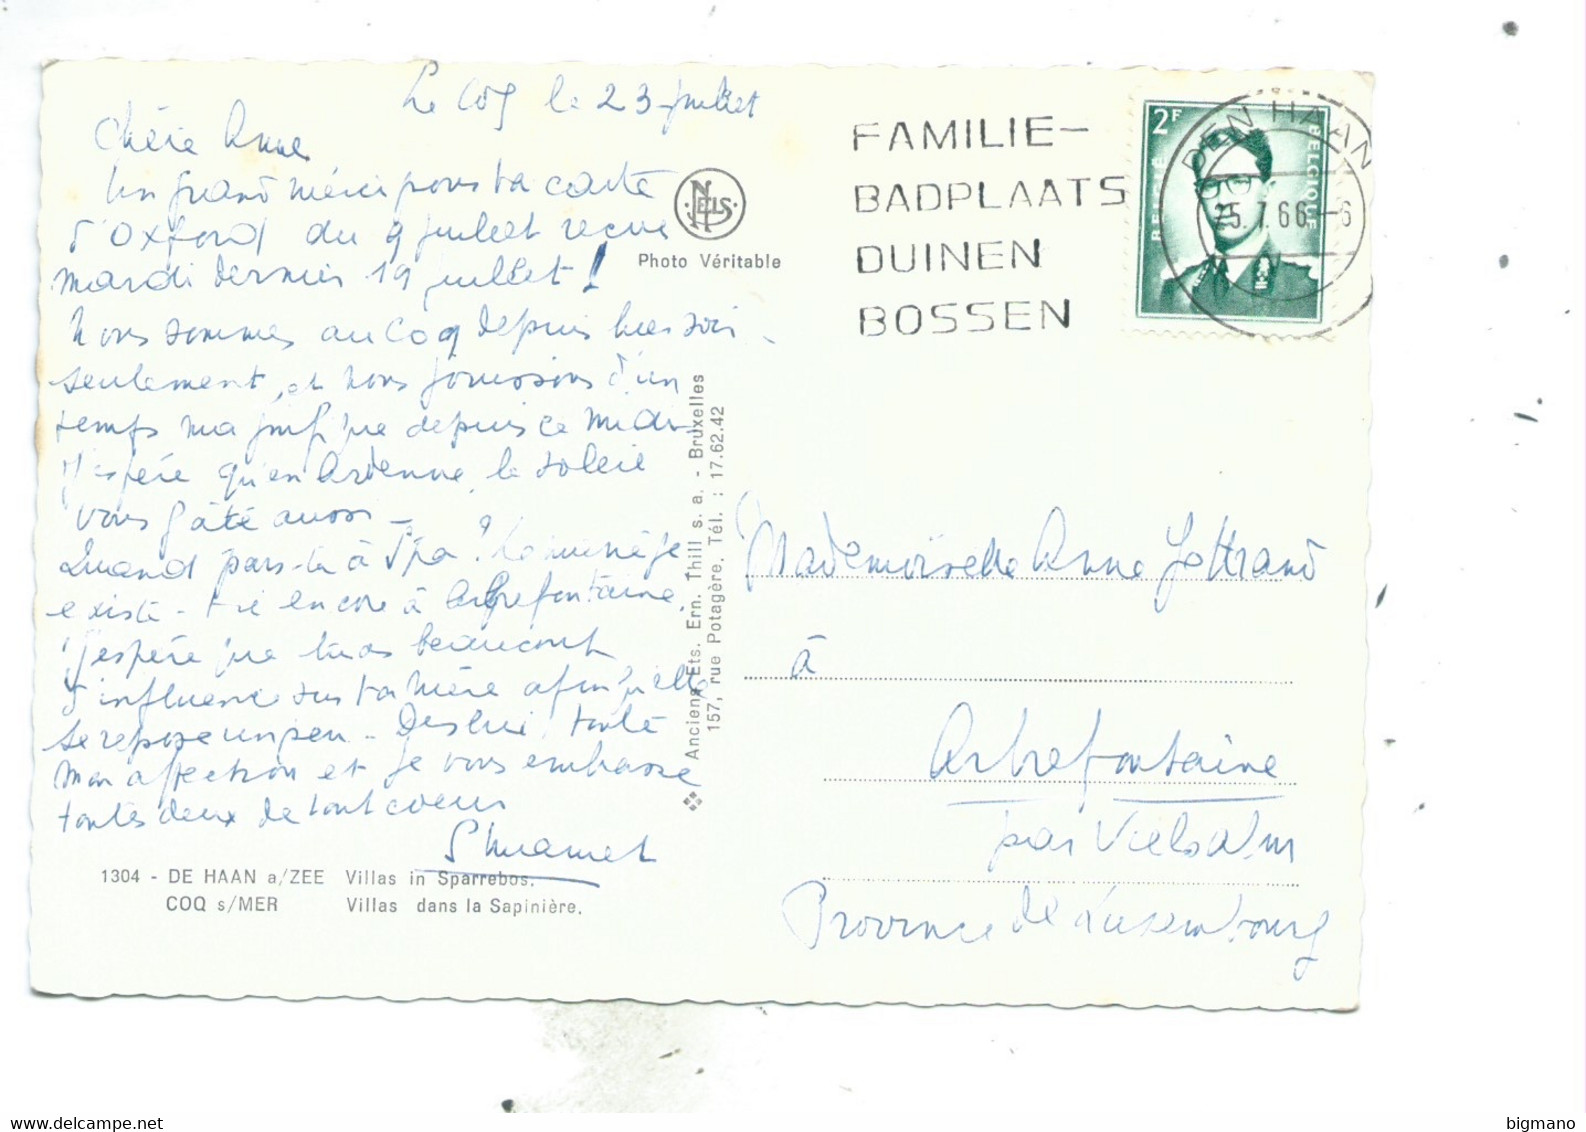 Le Coq le 23 juillet
Chère Anne
Un grand merci pour ta carte
d'Oxford du 9 juillet recue
mardi dernier 19 juillet !
Nous sommes au Coq depuis hier soir
seulement, et nous jouissons d'un
temps magnifique depuis ce midi -
J'espère qu'en Ardenne, le soleil
vous gâte aussi -
Quand pars-tu à Spa ? Le
existe - t-il encore à Arbrefontaine.
J'espère que tu as beaucoup
d'influence sur ta mère afin qu'elle
se repose un peu - Dis lui toute
mon affection et je vous embrasse
toutes deux de tout coeur
1304 - DE HAAN a/ZEE Villas in Sparrebos.
COQ s/MER Villas dans la Sapinière.
NELS
Photo Véritable
Anciens Ets. Ern. Thill s. a. - Bruxelles
157, rue Potagère. Tél. : 17.62.42
FAMILIE-
BADPLAATS
DUINEN
BOSSEN
2F
BELGIË
BELGIQUE
DEN HAAN
25.7.66-6
Mademoiselle Anne Jottrand
à
Arbrefontaine
par Vielsalm
Province de Luxembourg